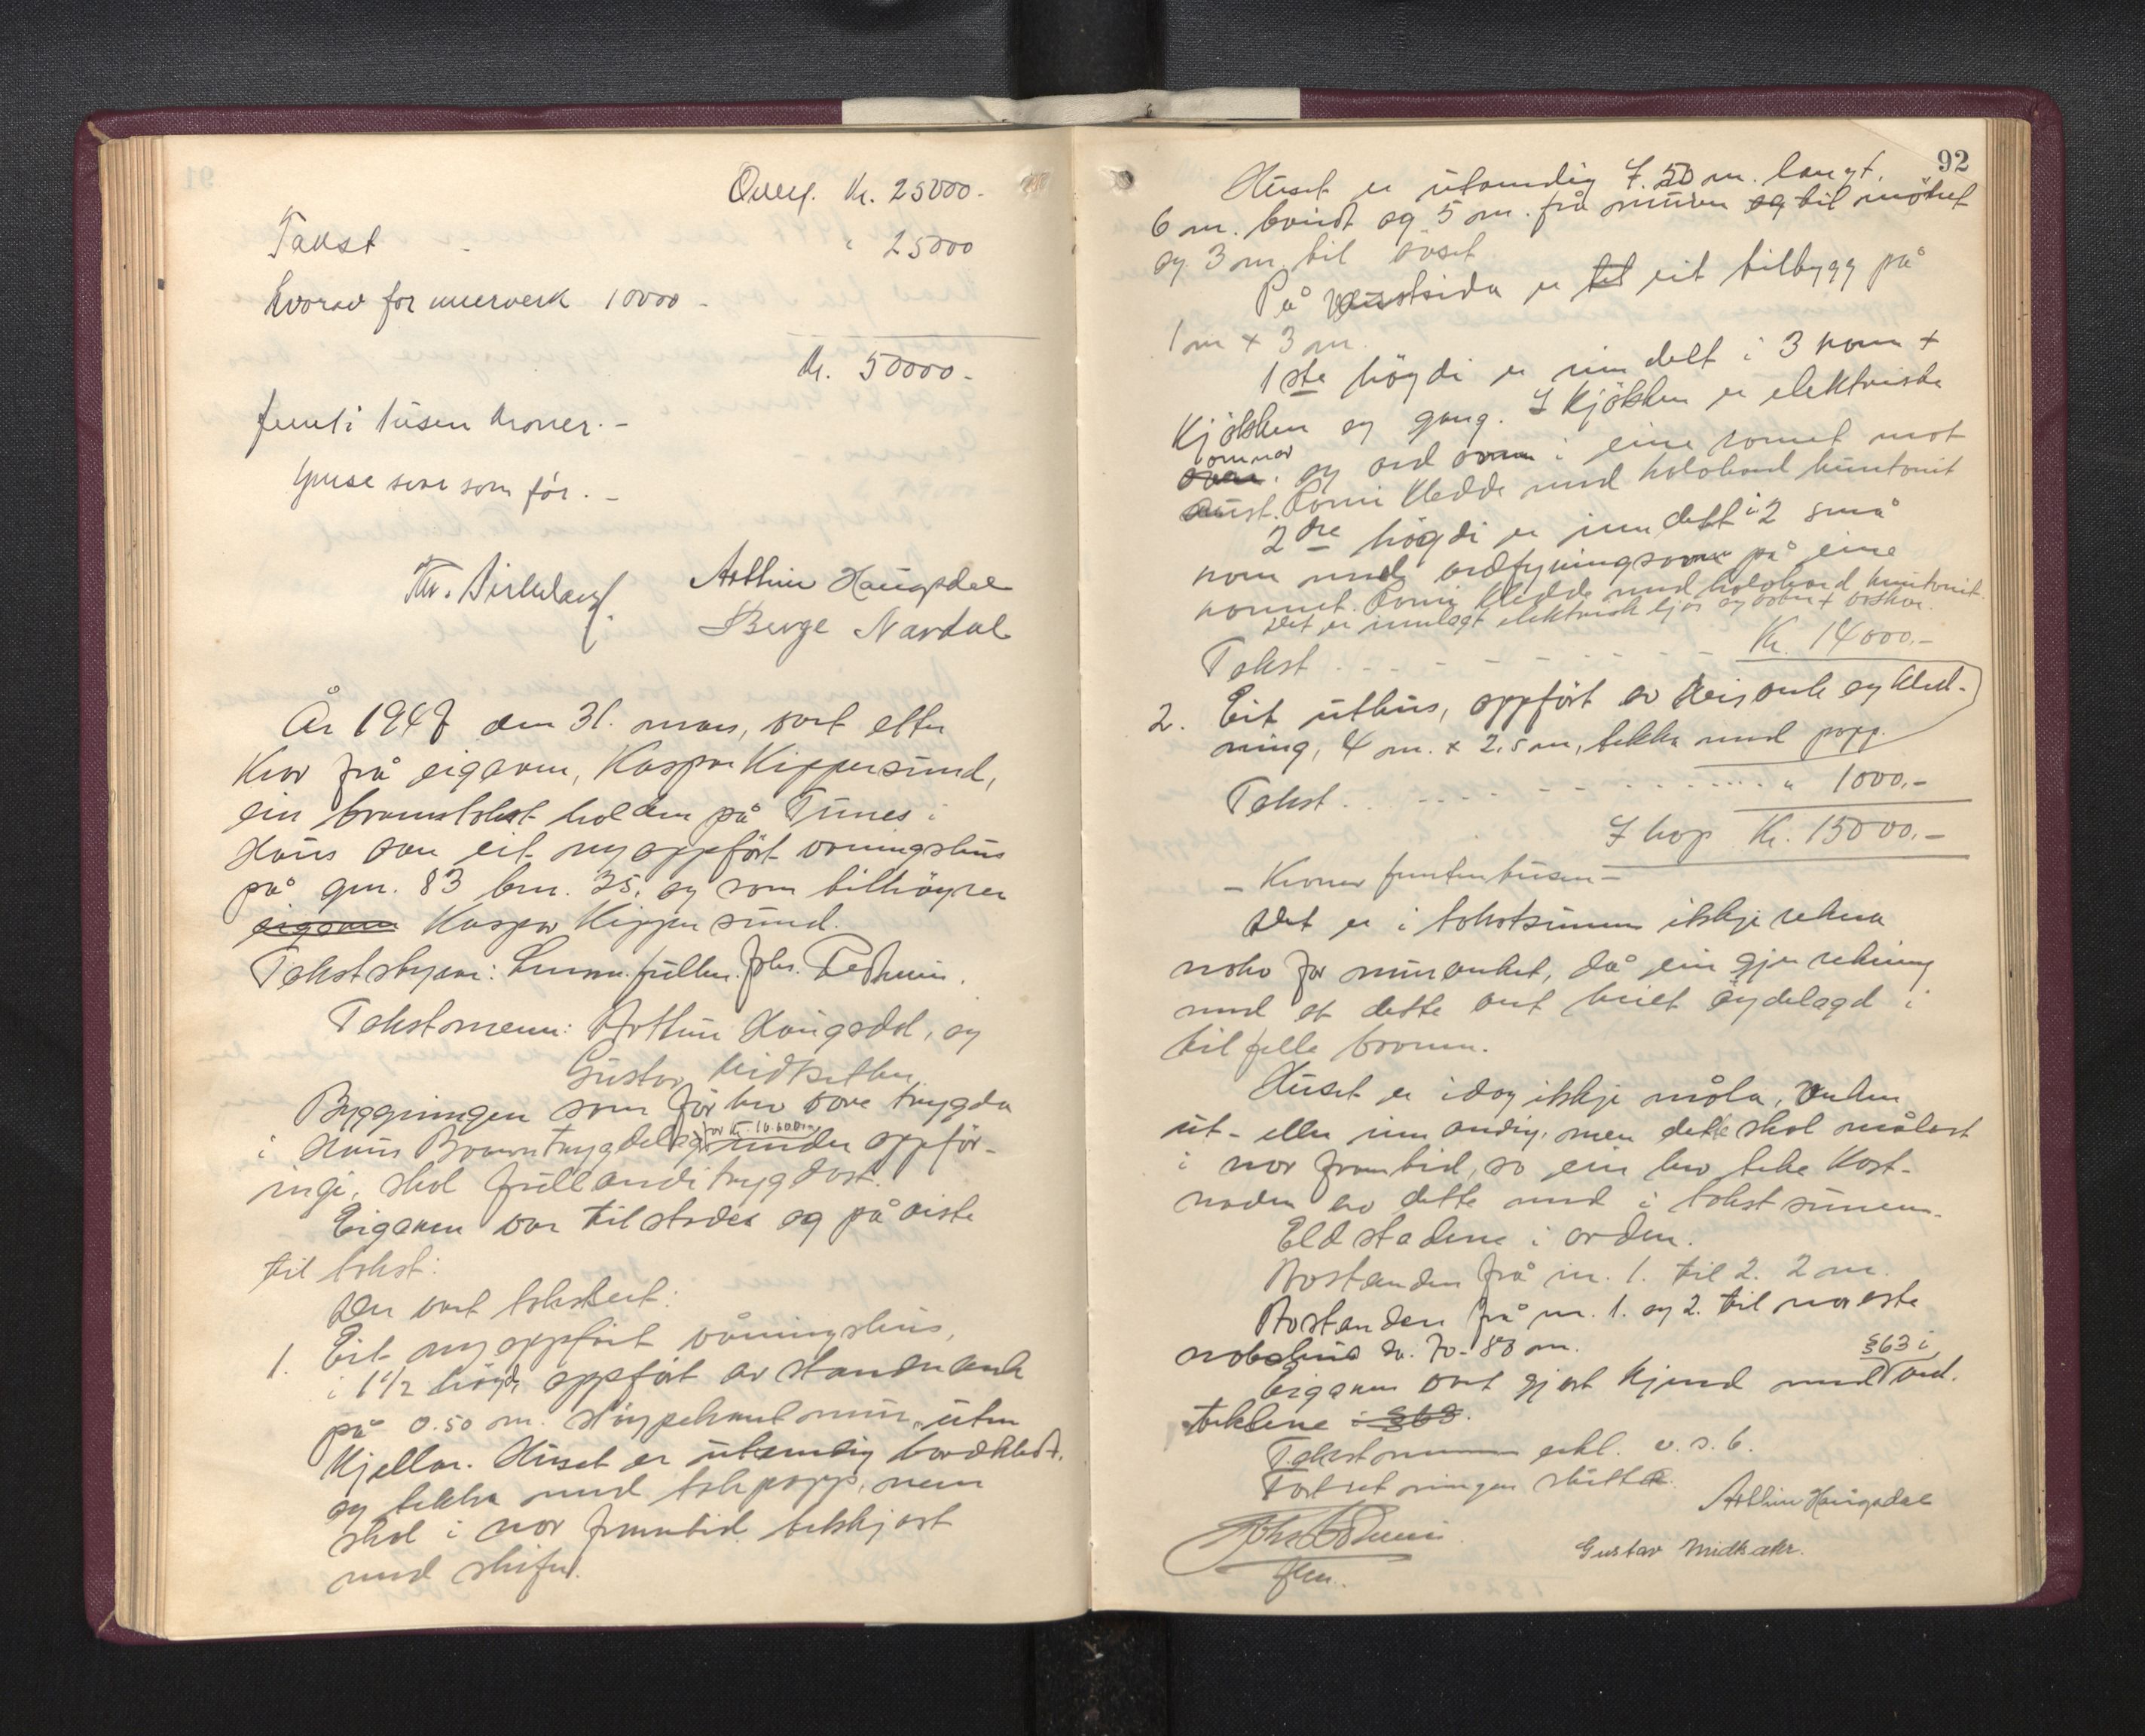 Overf. Kr. 25000.-
Takst - " 25000
Kvorav for murverk 10000 -
Kr. 50000.-
femti tusen kroner. -
Grense som før. -
Arthur Haugsdal
Børge Navdal
År 1947 den 31. mars, vart etter
krav frå eigaren, Kaspar Kippersund,
ein branntakst halden på Tunes i
Haus over eit nyoppført våningshus
på gnr. 83 bnr. 35. og som tilhöyrer
eigaren Kaspar Kippersund.
Takststyrar: Lensm.fullm. Johs.
Takstmenn: Arthur Haugsdal, og
Gustav Midtsæther.
Byggningen som för her vore trygda
i Haus Branntrygdelag for kr. 10.600.- under oppför-
ingi, skal fullendi trygdast.
Eigaren var tilstades og på viste
til takst:
Der vart takstert:
1. Eit nyoppfört våningshus,
i 1 1/2 högdi oppfört av standarverk
på 0.50 m. stöypekant mur, uten
kjellar. Huset er utvendig bordkledt.
og tekka med takpapp, men
skal i nær framtid tekkjast
med skifer.
92
Huset er utvendig 7.50 m. langt,
6 m. breidt og 5 m. frå muren og til mönet
og 3 m. til
På vestsida er tel eit tilbygg på
1 m x 3 m.
1ste högdi er inndelt i 3 rom +
kjökken og gang. I kjökken er elektriske
omnar
og ved omn i eine romet mot
aust. Romi kledde med haloband huntonit
2dre högdi er inndelt i 2 små
rom med vedfyringsomn på eine
rommet. Romi kledde med haloband huntonit.
Det er innlagt elektrisk ljos og vatn + vaskar.
Takst - - - - - - Kr. 14000.-
2. Eit uthus, oppfört av reisverk og kled-
ning, 4 m. x 2,5 m, tekka med papp.
Takst . . - - - - - " 1000.-
I hop Kr. 15000.-
- Kroner femtentusen -
Det er i takstsummen ikkje rekna
noko for murverket, då ein gjer rekning
med at dette vert heilt öydelagd i
tilfelle brann.
Huset er idag ikkje måla, verken
ut- eller innvendig, men dette skal målast
i nær framtid, so ein har teke kost-
naden av dette med i takstsummen.
Eldstadene i orden.
Avstanden frå nr. 1. til 2. 2 m.
Avstanden frå nr. 1. og 2. til næreste
nabohus ca. 70-80 m.
Eigaren vart gjort kjend med §63 i ved-
tektene i §63.
Takstmennene erkl. o.s.b.
Forretningen slutta.
Arthur Haugsdal
Gustav Midtsæter.